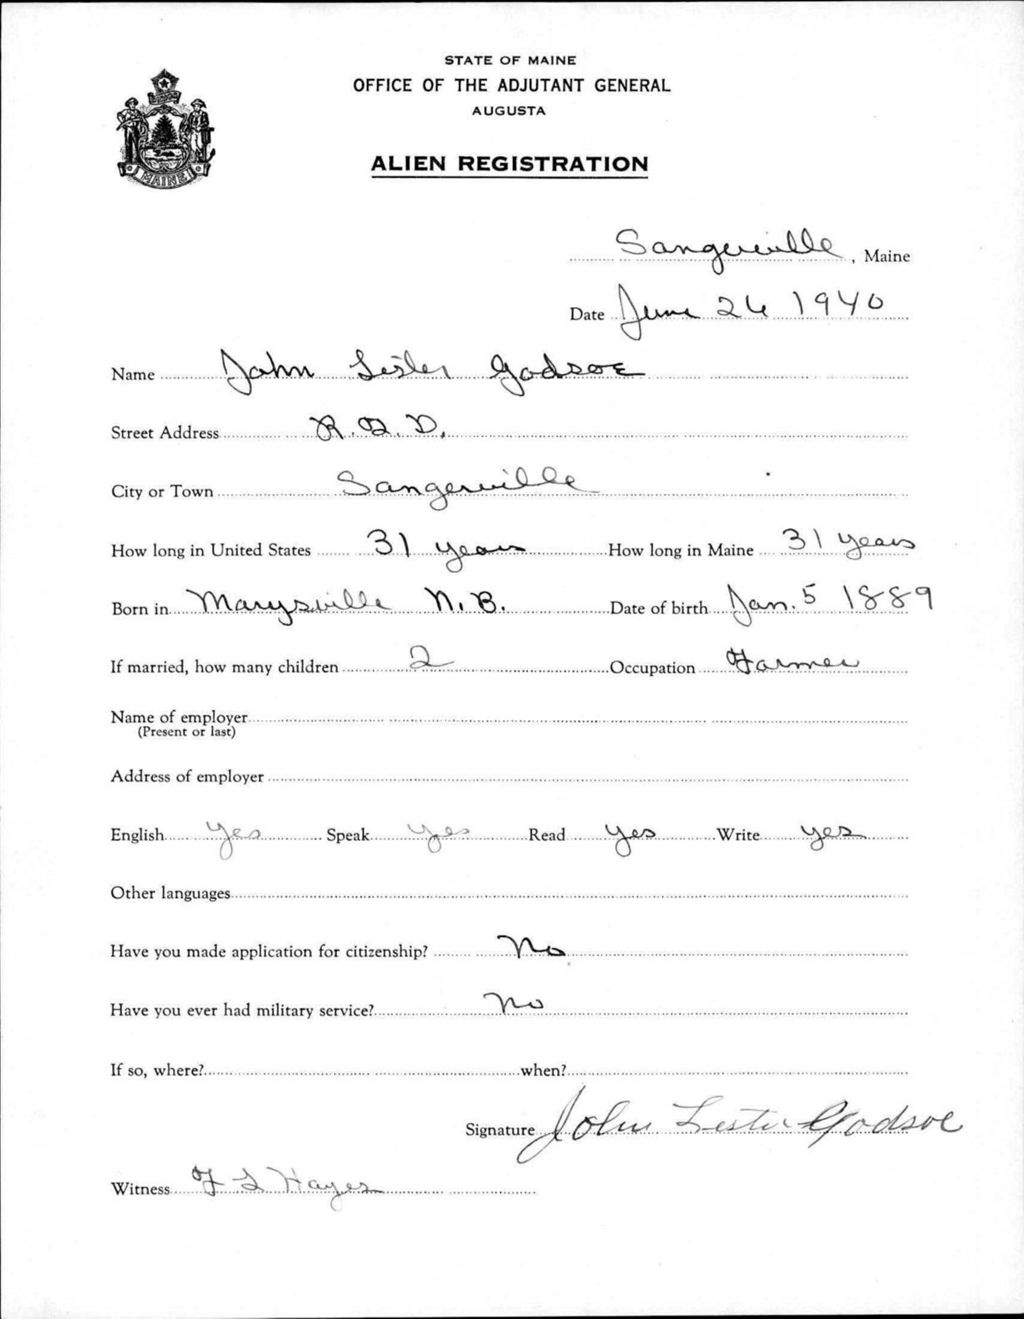 STATE OF MAINE
OFFICE OF THE ADJUTANT GENERAL
AUGUSTA
ALIEN REGISTRATION
MAINE
Sangerville, Maine
Date June 26 1940
Name John Lester Godsoe
Street Address R.F.D.
City or Town Sangerville
How long in United States 31 years How long in Maine 31 years
Born in Marysville N.B. Date of birth Jan. 5 1889
If married, how many children 2 Occupation Farmer
Name of employer
(Present or last)
Address of employer
English yes Speak yes Read yes Write yes
Other languages
Have you made application for citizenship? No
Have you ever had military service? No
If so, where? when?
Signature John Lester Godsoe
Witness F L Hayes